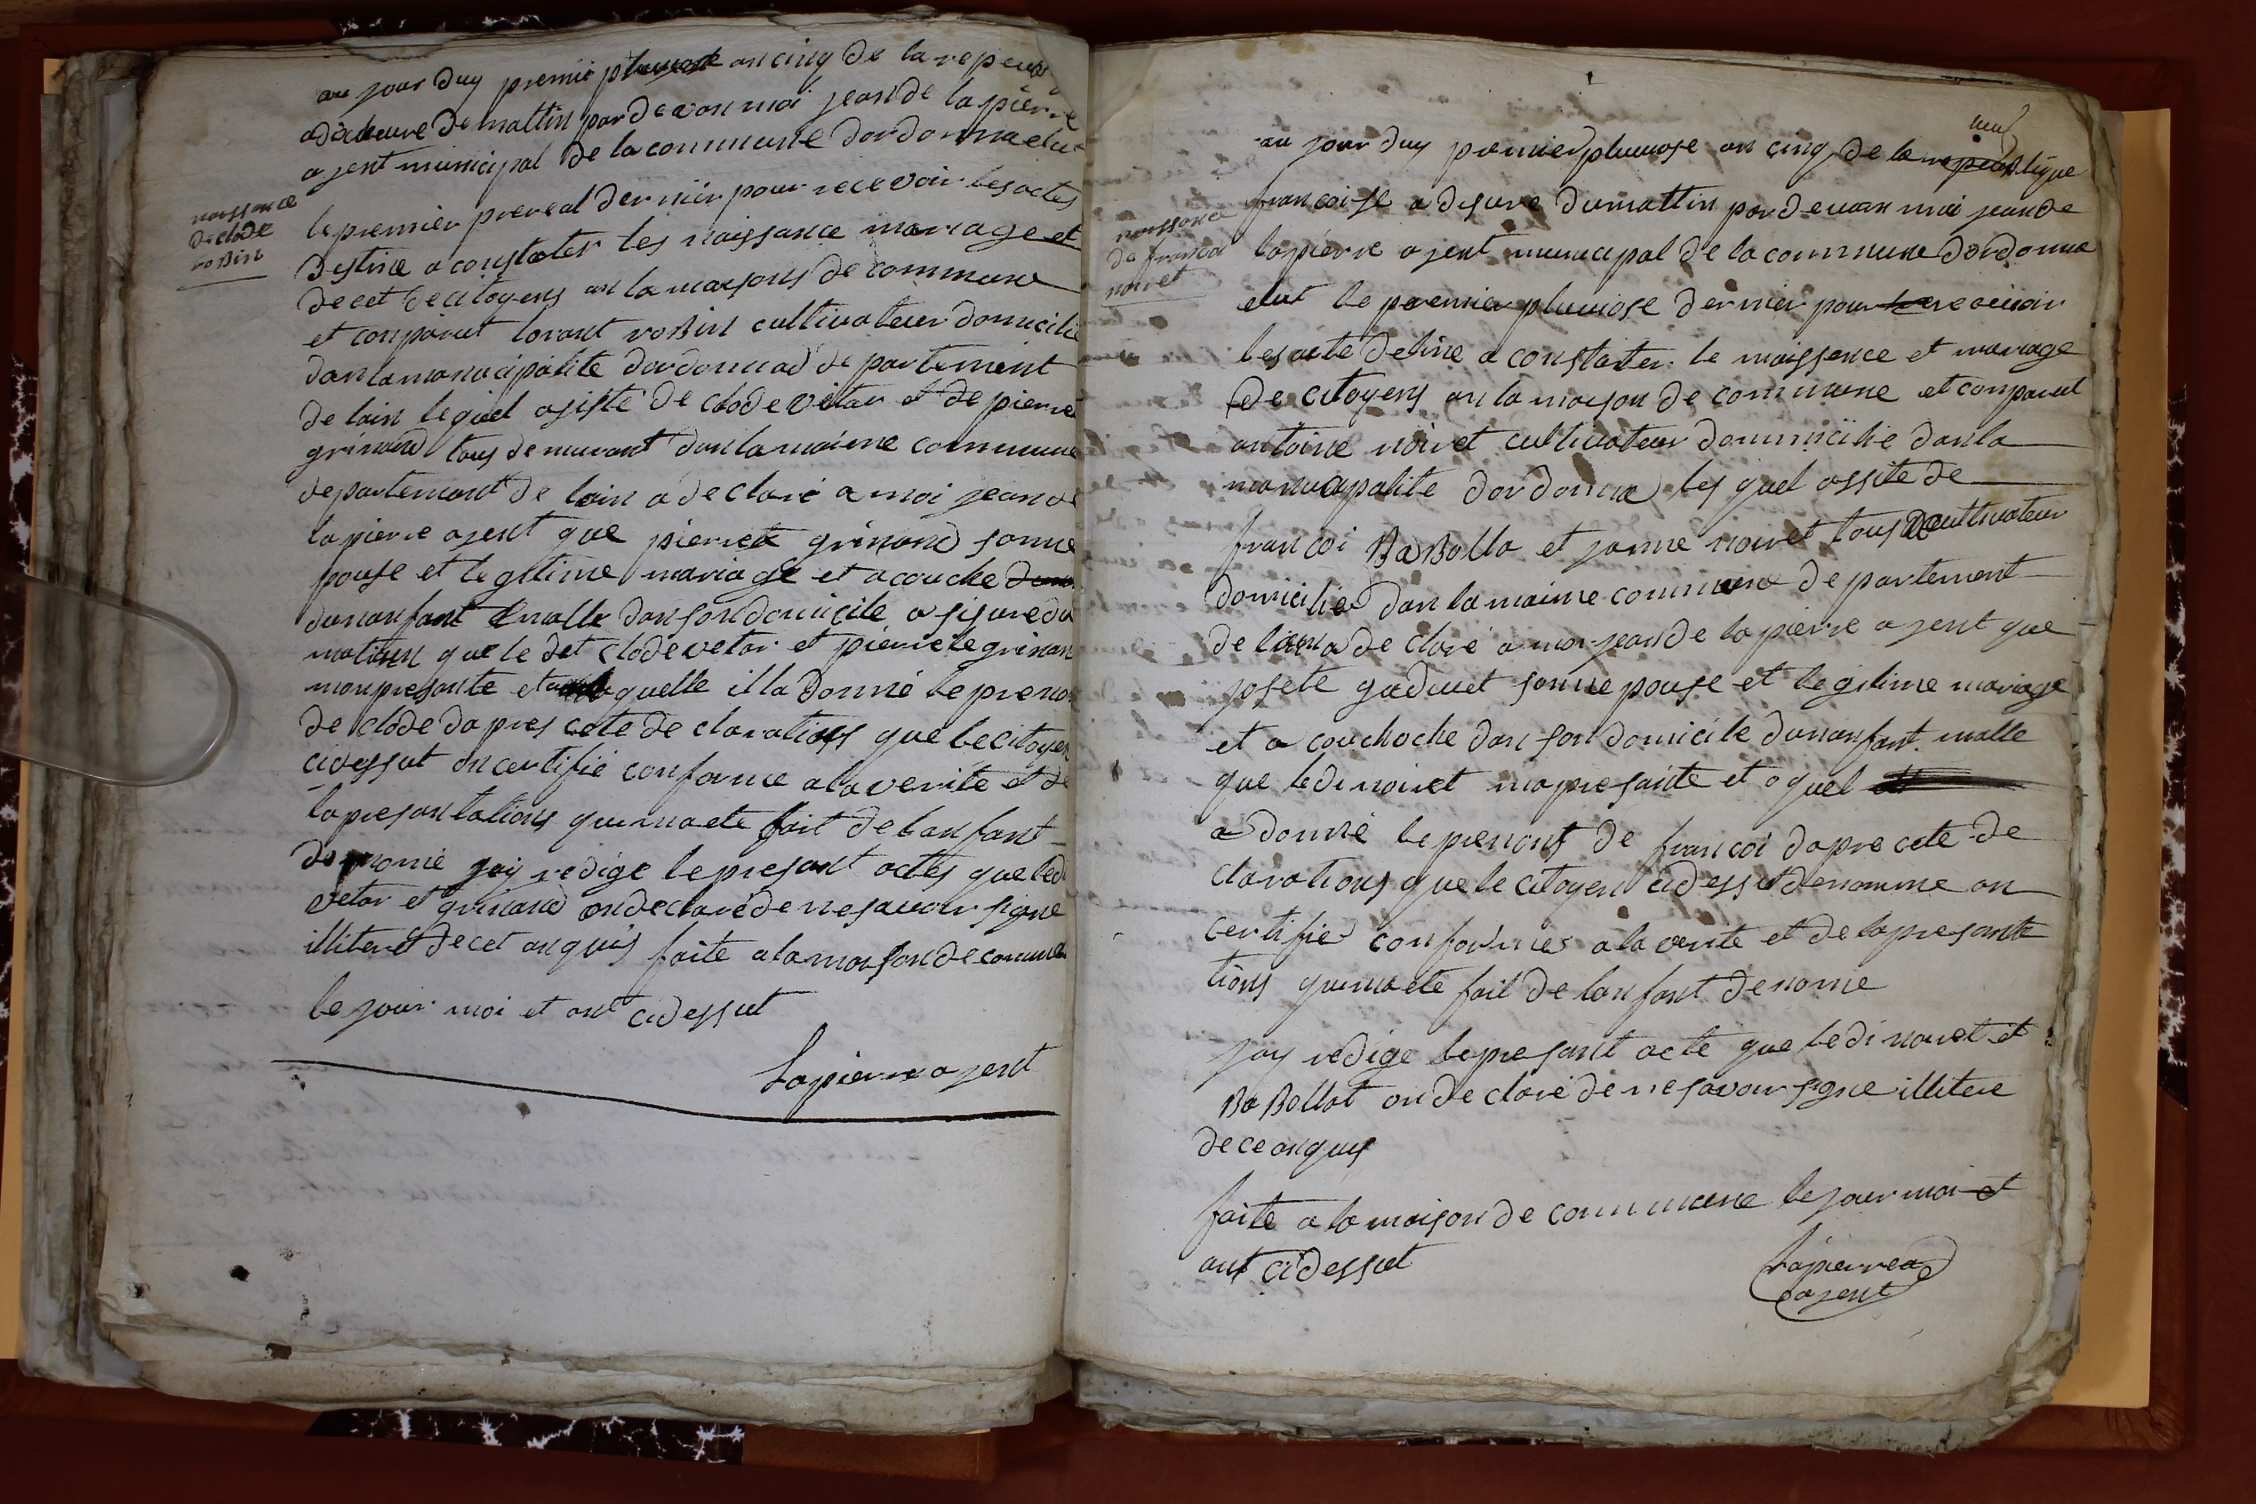 au jour duy premie pluviose an cinq de la repeub
a dix heure de mattin par devan moi jean de la pierre
agent municipal de la commune dordonna elut
le premier prereal dernier pour recevoir les actes
destine a constater les naissance mariage et
decet de citoyens an la maisons de commune
et comparut lorant robin cultivateur domicilie
dan la manucipalite dordonnad departement
de lain lequel asisté de clode vetar et de pierre
grinand tous demeurant dan la maime commune
departement de lain a declaré a moi jean de
la pierre agent que pierrete grinand sonne
pouse et legitime mariage et acouche
dunanfant malle dan son domicile a sisure du
matien que le det clode vetar et pierrete grinan
mon presante et quelle il la donné le prenon
de clode dapres cete declarations que le citoyen
cidessut on certifie conforme a la verite et de
la presantations qui ma ete fait de lanfant
denomé jay redige le presant actes que led
vetar et grinand on declaré de ne savoir signe
illiteret de cet anquis faite a la maison de commune
le jour moi et ant cidessut
Lapierre agent
naissance
de clode
robin
neuf
au jour duy premier pluviose an cinq de la repeublique
francoise a disure du mattin par devan moi jean de
lapierre agent municipal de la commune dordonna
elut le premier pluviose dernier pour recevoir
les acte detine a constater le naissance et mariage
de citoyens an la maison de commune et comparut
antoine noiret cultivateur dommicilie dan la
manucipalite dordonna les quel assite de
francoi Babolla et janne noiret tous de cultivateur
domicilie dan la maime commune departement
de lain a declaré a moi jean de la pierre agent que
josete gaduet sonne pouse et legitime mariage
et a couchoche dan son domicile dunanfant malle
que ledi noiret ma presante et a quel
a donné le prenont de francoi dapre cete de
clarations que le citoyen cidessut denomme on
certifie conformes a la verite et de la presanta
tions qui ma ete fait de lanfant denomé
jay redige le presant acte que ledi noiret et
Babollat on declaré de ne savoir signe illitere
de ce anquis
faite a la maison de commune le jour moi et
ant cidessut
Lapierre
agent
naissance
de francoi
noiret